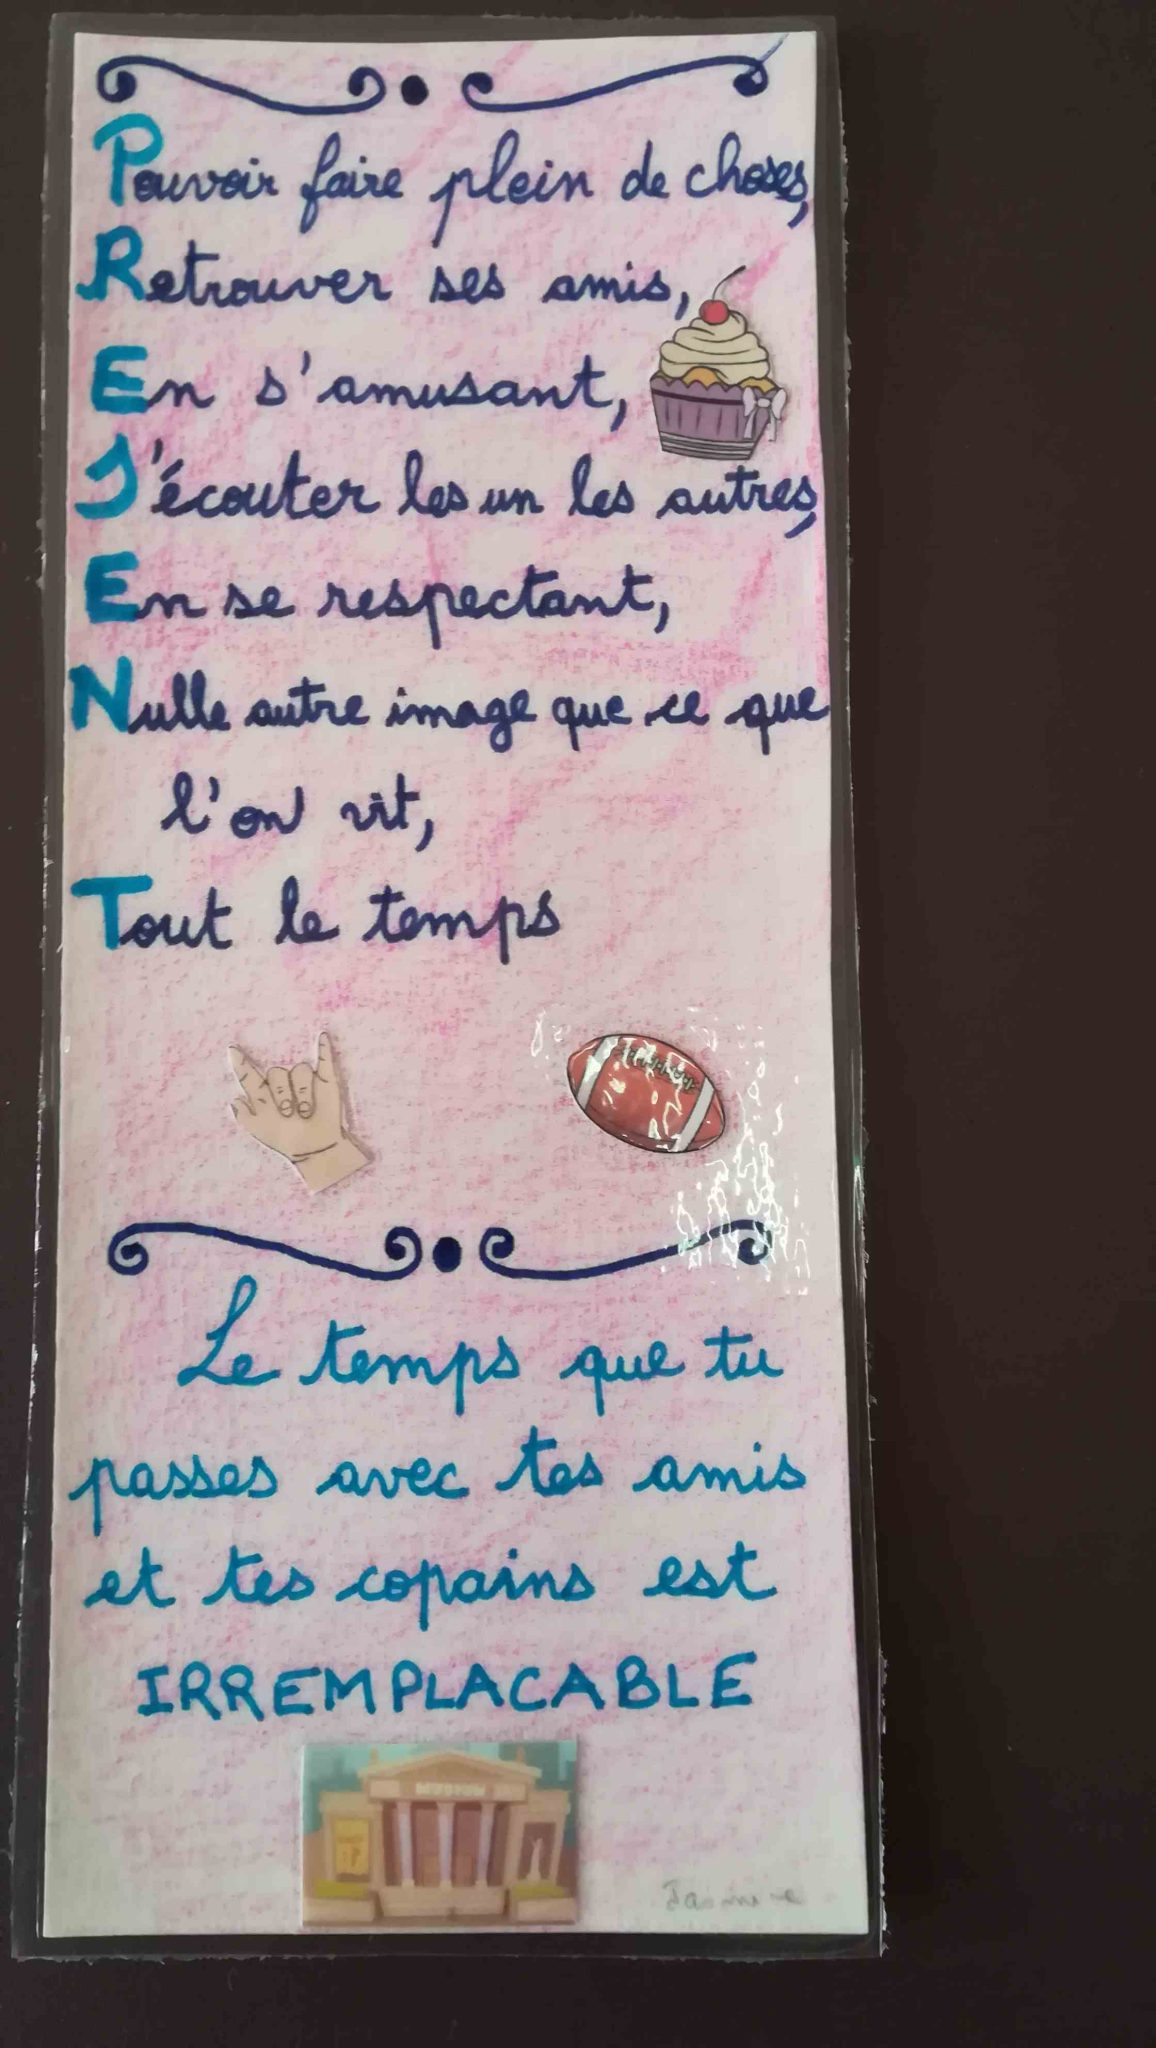 Pouvoir faire plein de choses,
Retrouver ses amis,
En s'amusant,
S'écouter les un les autres,
En se respectant,
Nulle autre image que ce que
l'on vit,
Tout le temps
Le temps que tu
passes avec tes amis
et tes copains est
IRREMPLACABLE
MUSEUM